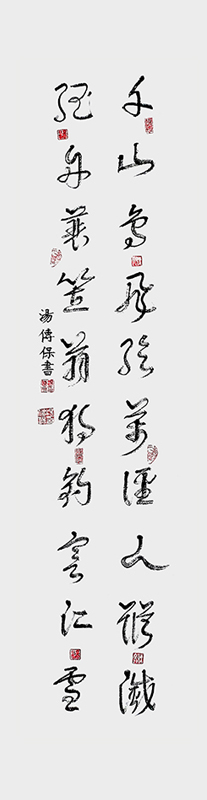 千山鳥飛絕萬徑人蹤滅
孤舟蓑笠翁獨釣寒江雪
湯傳保書